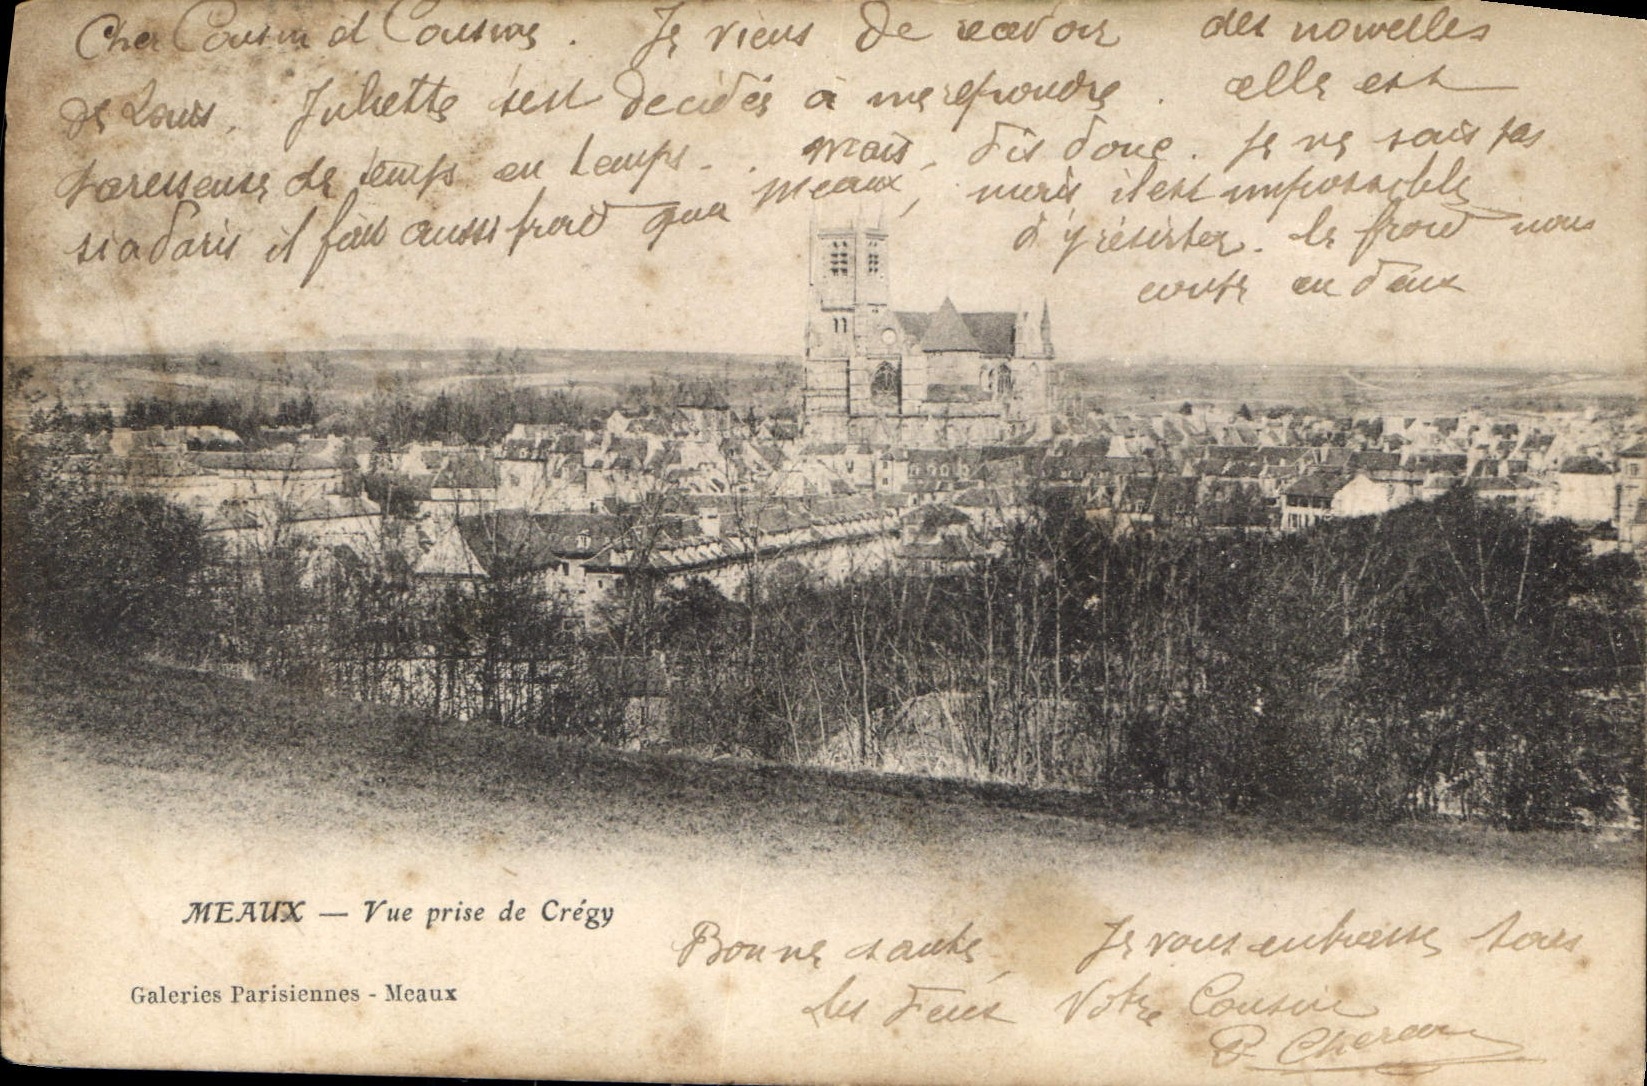 Cher Cousin et Cousine. Je viens de recevoir des nouvelles
de Louis, Juliette s'est décidée à me répondre. elle est
paresseuse de temps en temps.. mais, dis donc. je ne sais pas
si a Paris il fait aussi froid qua Meaux, mais il est impossible
d'y résister. le froid nous
coupe en deux
MEAUX — Vue prise de Crégy
Galeries Parisiennes - Meaux
Bonne santé, Je vous embrasse tous
les deux Votre Cousin
P.